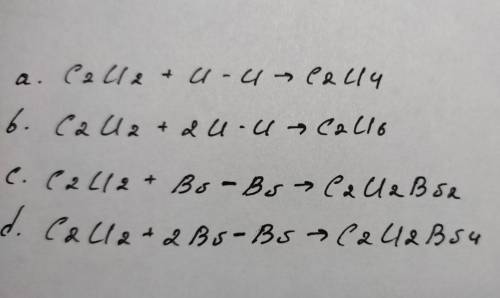 a. C2H2 + H-H → C2H4
b. C2H2 + 2H-H → C2H6
c. C2H2 + Br-Br → C2H2Br2
d. C2H2 + 2Br-Br → C2H2Br4